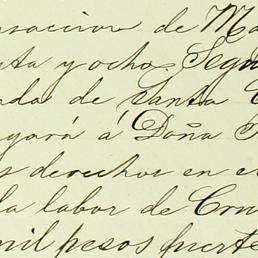 sacion de Ma
ta y ocho. Segu
ada de santa C
gará á Doña
s derechos en e
la labor de Cru
mil pesos fuerte